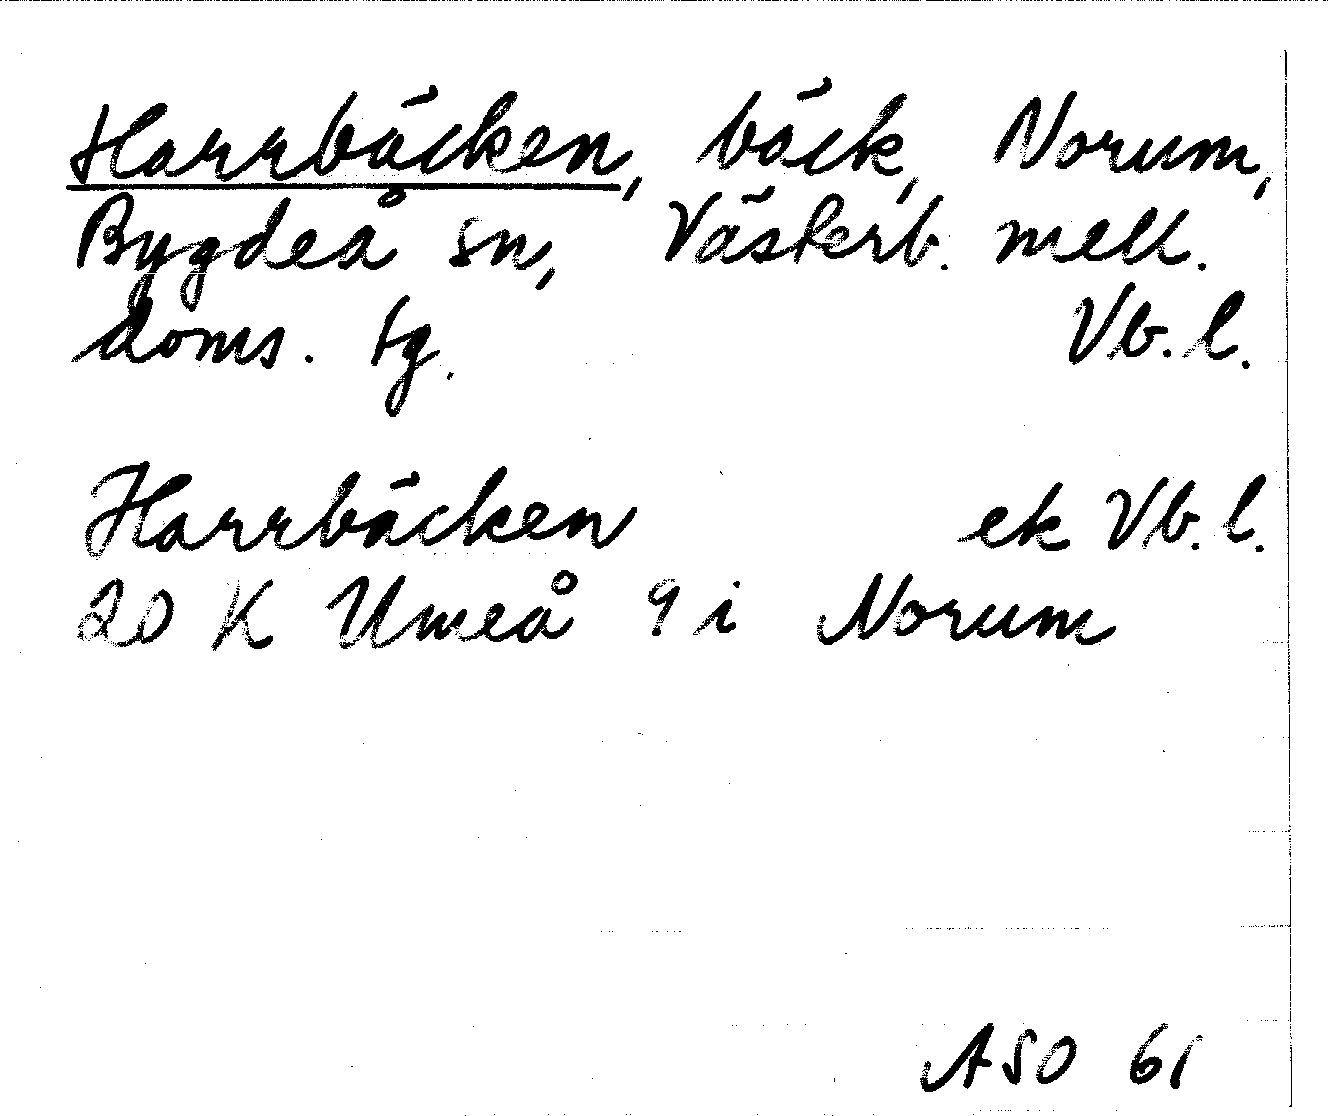 Harrbäcken, bäck, Norum,
Bygdeå sn, Västerb. mell.
doms. tg. Vb. l.
Harrbäcken ek Vb. l.
20 K Umeå 9 i Norum
ASO 61